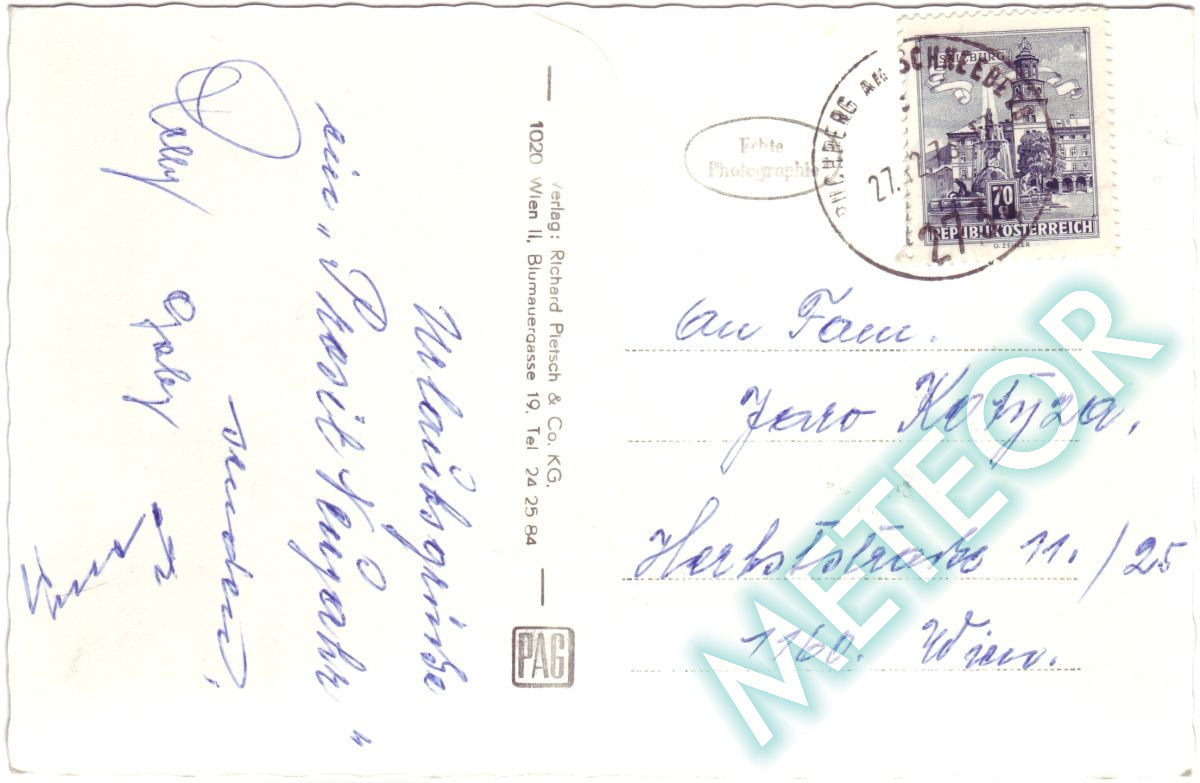 Urlaubsgrüße
ein „Prosit Neujahr“
senden,
Gaby
Verlag: Richard Pietsch & Co. KG.
1020 Wien II, Blumauergasse 19, Tel 24 25 84
PAG
Echte
Photographie
PUCHBERG AM SCHNEEBERG
27.
SALZBURG
70
REPUBLIK ÖSTERREICH
O. ZEILER
An Fam.
Jaro Kotyza,
Herbststraße 11./25
1160. Wien.
METEOR